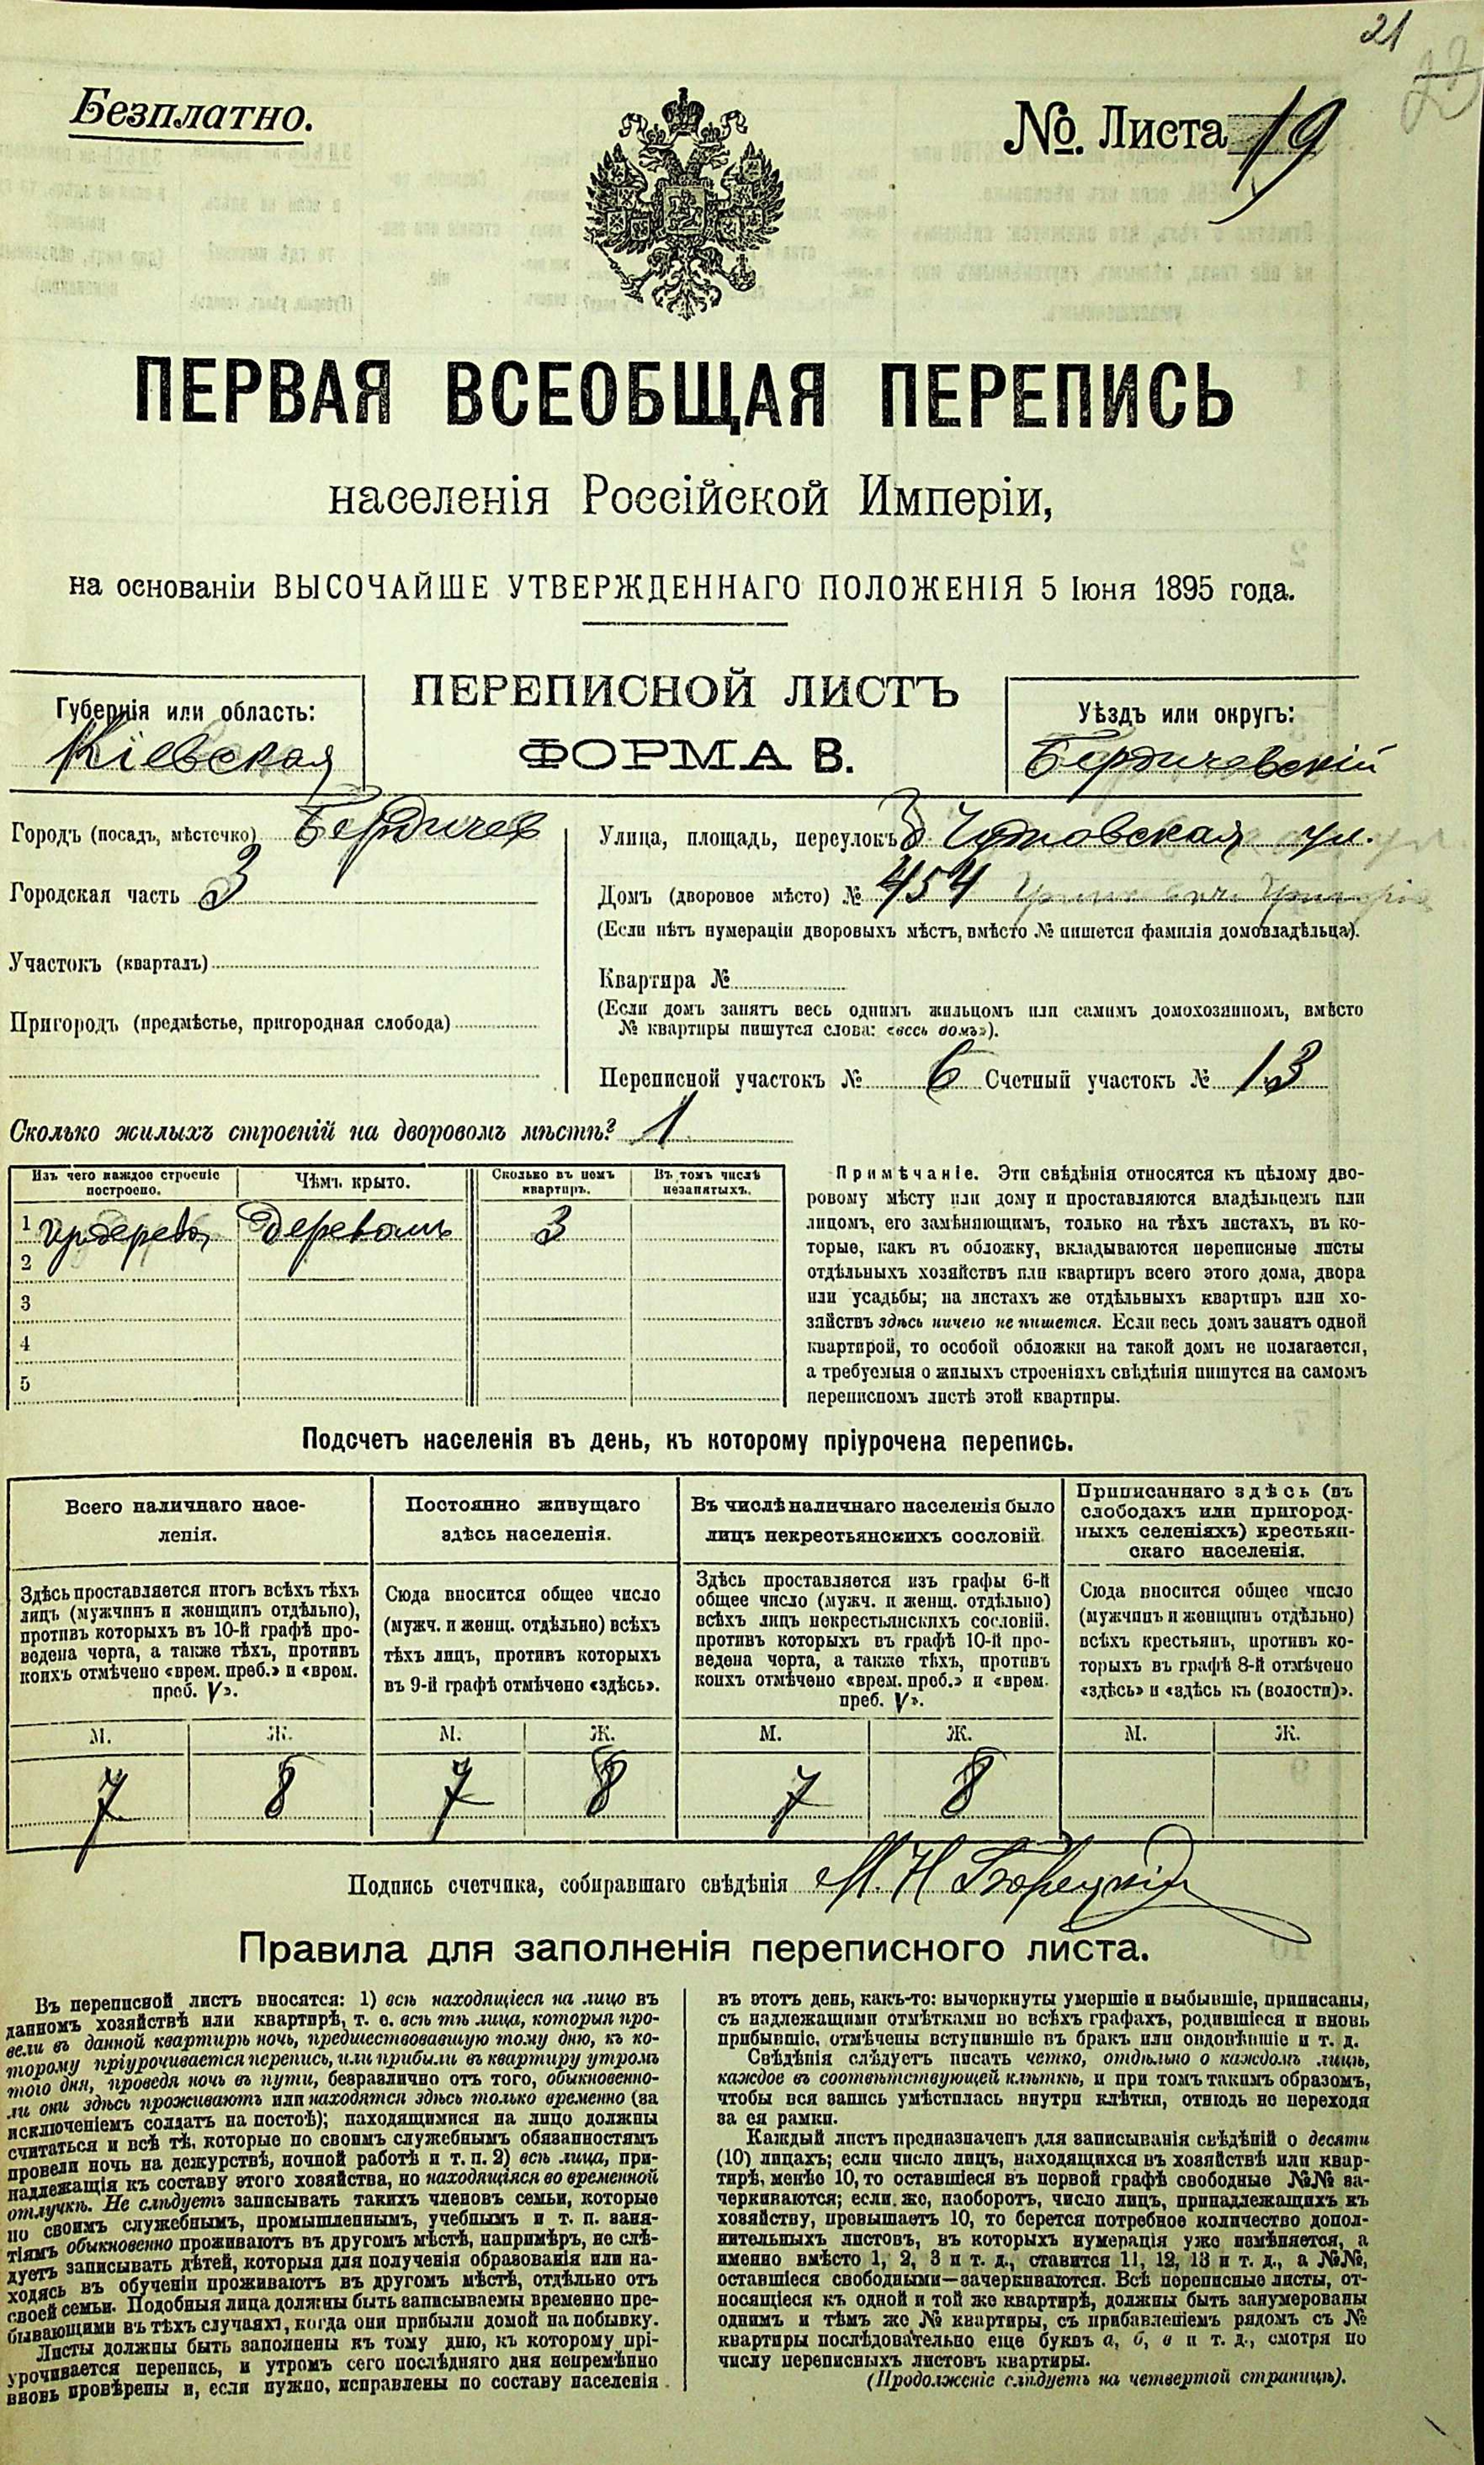 21
Безплатно.
№. Листа 19
ПЕРВАЯ ВСЕОБЩАЯ ПЕРЕПИСЬ
населенія Россійской Имперіи,
на основаніи ВЫСОЧАЙШЕ УТВЕРЖДЕННАГО ПОЛОЖЕНІЯ 5 Іюня 1895 года.
ПЕРЕПИСНОЙ ЛИСТЪ
ФОРМА В.
Губернія или область:
Кіевская
Уѣздъ или округъ:
Бердичевскій
Городъ (посадъ, мѣстечко) Бердичев
Городская часть 3
Участокъ (кварталъ)
Пригородъ (предмѣстье, пригородная слобода)
Улица, площадь, переулокъ Чудновская ул.
Домъ (дворовое мѣсто) № 454
(Если нѣтъ нумераціи дворовыхъ мѣстъ, вмѣсто № пишется фамилія домовладѣльца).
Квартира №
(Если домъ занятъ весь однимъ жильцомъ или самимъ домохозяиномъ, вмѣсто
№ квартиры пишутся слова: «весь домъ»).
Переписной участокъ № 6 Счетный участокъ № 13
Сколько жилыхъ строеній на дворовомъ мѣстѣ? 1
Изъ чего каждое строеніе
построено.
Чѣмъ крыто.
Сколько въ немъ
квартиръ.
Въ томъ числѣ
незанятыхъ.
1 Деревомъ 3
2
3
4
5
Примѣчаніе. Эти свѣдѣнія относятся къ цѣлому дво-
ровому мѣсту или дому и проставляются владѣльцемъ или
лицомъ, его замѣняющимъ, только на тѣхъ листахъ, въ ко-
торые, какъ въ обложку, вкладываются переписные листы
отдѣльныхъ хозяйствъ или квартиръ всего этого дома, двора
или усадьбы; на листахъ же отдѣльныхъ квартиръ или хо-
зяйствъ здѣсь ничего не пишется. Если весь домъ занятъ одной
квартирой, то особой обложки на такой домъ не полагается,
а требуемыя о жилыхъ строеніяхъ свѣдѣнія пишутся на самомъ
переписномъ листѣ этой квартиры.
Подсчетъ населенія въ день, къ которому пріурочена перепись.
Всего наличнаго насе-
ленія.
Здѣсь проставляется итогъ всѣхъ тѣхъ
лицъ (мужчинъ и женщинъ отдѣльно),
противъ которыхъ въ 10-й графѣ про-
ведена черта, а также тѣхъ, противъ
коихъ отмѣчено «врем. преб.» и «врем.
преб. V».
Постоянно живущаго
здѣсь населенія.
Сюда вносится общее число
(мужч. и женщ. отдѣльно) всѣхъ
тѣхъ лицъ, противъ которыхъ
въ 9-й графѣ отмѣчено «здѣсь».
Въ числѣ наличнаго населенія было
лицъ некрестьянскихъ сословій.
Здѣсь проставляется изъ графы 6-й
общее число (мужч. и женщ. отдѣльно)
всѣхъ лицъ некрестьянскихъ сословій.
противъ которыхъ въ графѣ 10-й про-
ведена черта, а также тѣхъ, противъ
коихъ отмѣчено «врем. преб.» и «врем.
преб. V».
Приписаннаго здѣсь (въ
слободахъ или пригород-
ныхъ селеніяхъ) крестьян-
скаго населенія.
Сюда вносится общее число
(мужчинъ и женщинъ отдѣльно)
всѣхъ крестьянъ, противъ ко-
торыхъ въ графѣ 8-й отмѣчено
«здѣсь» и «здѣсь къ (волости)».
М. Ж. М. Ж. М. Ж. М. Ж.
7 8 7 8 7 8
Подпись счетчика, собиравшаго свѣдѣнія М. Н. Борецкій
Правила для заполненія переписного листа.
Въ переписной листъ вносятся: 1) всѣ находящіеся на лицо въ
данномъ хозяйствѣ или квартирѣ, т. е. всѣ тѣ лица, которыя про-
вели въ данной квартирѣ ночь, предшествовавшую тому дню, къ ко-
торому пріурочивается перепись, или прибыли въ квартиру утромъ
того дня, проведя ночь въ пути, безразлично отъ того, обыкновенно-
ли они здѣсь проживаютъ или находятся здѣсь только временно (за
исключеніемъ солдатъ на постоѣ); находящимися на лицо должны
считаться и всѣ тѣ, которые по своимъ служебнымъ обязанностямъ
провели ночь на дежурствѣ, ночной работѣ и т. п. 2) всѣ лица, при-
надлежащія къ составу этого хозяйства, но находящіяся во временной
отлучкѣ. Не слѣдуетъ записывать такихъ членовъ семьи, которые
по своимъ служебнымъ, промышленнымъ, учебнымъ и т. п. заня-
тіямъ обыкновенно проживаютъ въ другомъ мѣстѣ, напримѣръ, не слѣ-
дуетъ записывать дѣтей, которыя для полученія образованія или на-
ходясь въ обученіи проживаютъ въ другомъ мѣстѣ, отдѣльно отъ
своей семьи. Подобныя лица должны быть записываемы временно пре-
бывающими въ тѣхъ случаяхъ, когда они прибыли домой на побывку.
Листы должны быть заполнены къ тому дню, къ которому прі-
урочивается перепись, и утромъ сего послѣдняго дня непремѣнно
вновь провѣрены и, если нужно, исправлены по составу населенія
въ этотъ день, какъ-то: вычеркнуты умершіе и выбывшіе, приписаны,
съ надлежащими отмѣтками во всѣхъ графахъ, родившіеся и вновь
прибывшіе, отмѣчены вступившіе въ бракъ или овдовѣвшіе и т. д.
Свѣдѣнія слѣдуетъ писать четко, отдѣльно о каждомъ лицѣ,
каждое въ соотвѣтствующей клѣткѣ, и при томъ такимъ образомъ,
чтобы вся запись умѣстилась внутри клѣтки, отнюдь не переходя
за ея рамки.
Каждый листъ предназначенъ для записыванія свѣдѣній о десяти
(10) лицахъ; если число лицъ, находящихся въ хозяйствѣ или квар-
тирѣ, менѣе 10, то оставшіеся въ первой графѣ свободные №№ за-
черкиваются; если. же, наоборотъ, число лицъ, принадлежащихъ къ
хозяйству, превышаетъ 10, то берется потребное количество допол-
нительныхъ листовъ, въ которыхъ нумерація уже измѣняется, а
именно вмѣсто 1, 2, 3 и т. д., ставится 11, 12, 13 и т. д., а №№,
оставшіеся свободными—зачеркиваются. Всѣ переписные листы, от-
носящіеся къ одной и той же квартирѣ, должны быть занумерованы
однимъ и тѣмъ же № квартиры, съ прибавленіемъ рядомъ съ №
квартиры послѣдовательно еще буквъ а, б, в и т. д., смотря по
числу переписныхъ листовъ квартиры.
(Продолженіе слѣдуетъ на четвертой страницѣ).